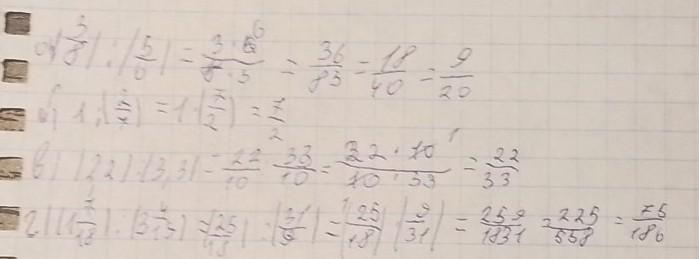 а) |3/8| : |5/6| = 3·6/8·5 = 36/83 = 18/40 = 9/20
б) 1 : (2/7) = 1·(7/2) = 7/2
в) |22| : |3,3| = 22/10 · 33/10 = 22·10/10·33 = 22/33
г) |1 7/18| : |3 4/| = |25/18| : |31/9| = |25/18| · |9/31| = 259/1831 = 225/558 = 75/186